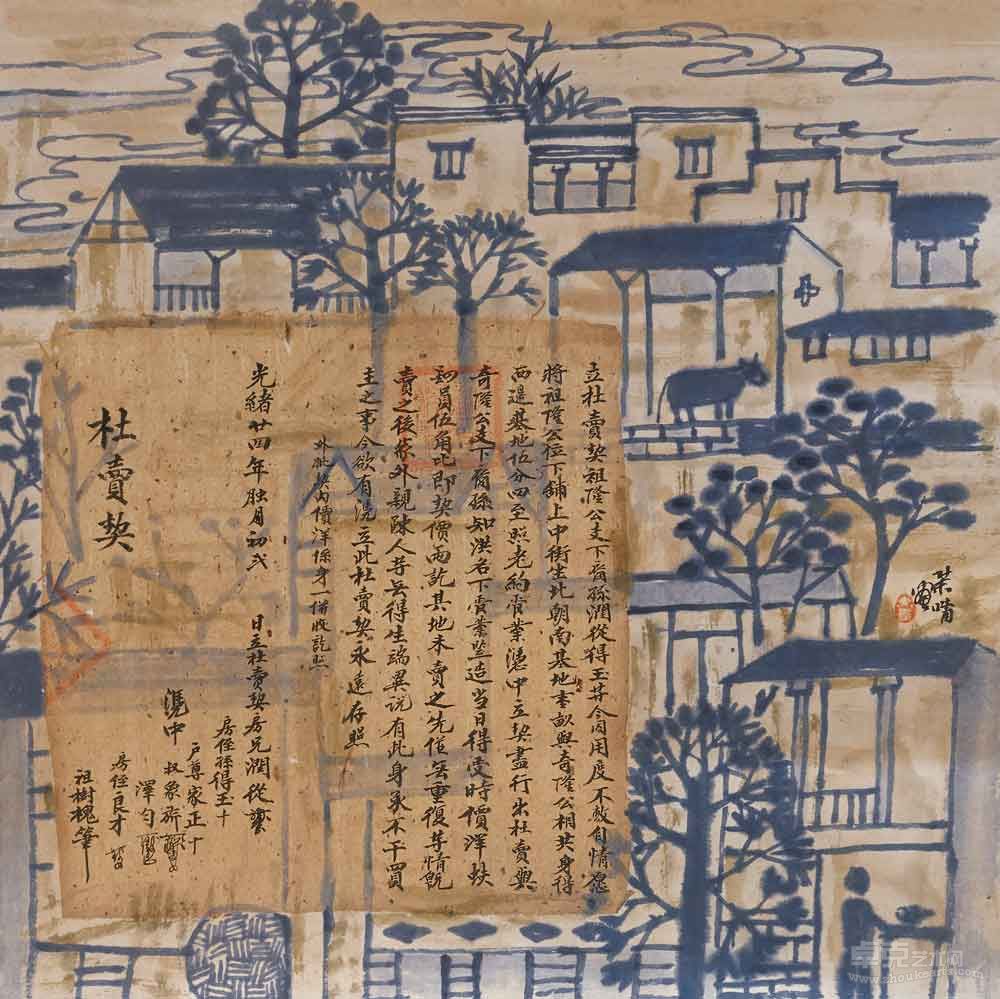 立杜賣契祖隆公支下裔孫潤從得玉等今因用度不敷自情愿
將祖隆公位下鋪上中街坐北朝南基地壹畝與奇隆公相共身得
西邊基地伍分四至照老約管業憑中立契盡行出杜賣與
奇隆公支下裔孫知洪名下管業豎造當日得受時價洋蚨
員伍角比即契價兩訖其地未賣之先從無重復等情既
賣之後家外親疎人等無得生端異说有此身承不干買
主之事今欲有憑立此杜賣契永遠存照
外批契內價洋係身一借收訖照
光緒廿四年月初弍
日立杜賣契房兄潤從
房侄孫得玉十
戶尊家正十
憑中 叔象
澤勻
房侄良才
祖樹槐筆
杜賣契
嘯
卓克艺术网
www.zhuokearts.com